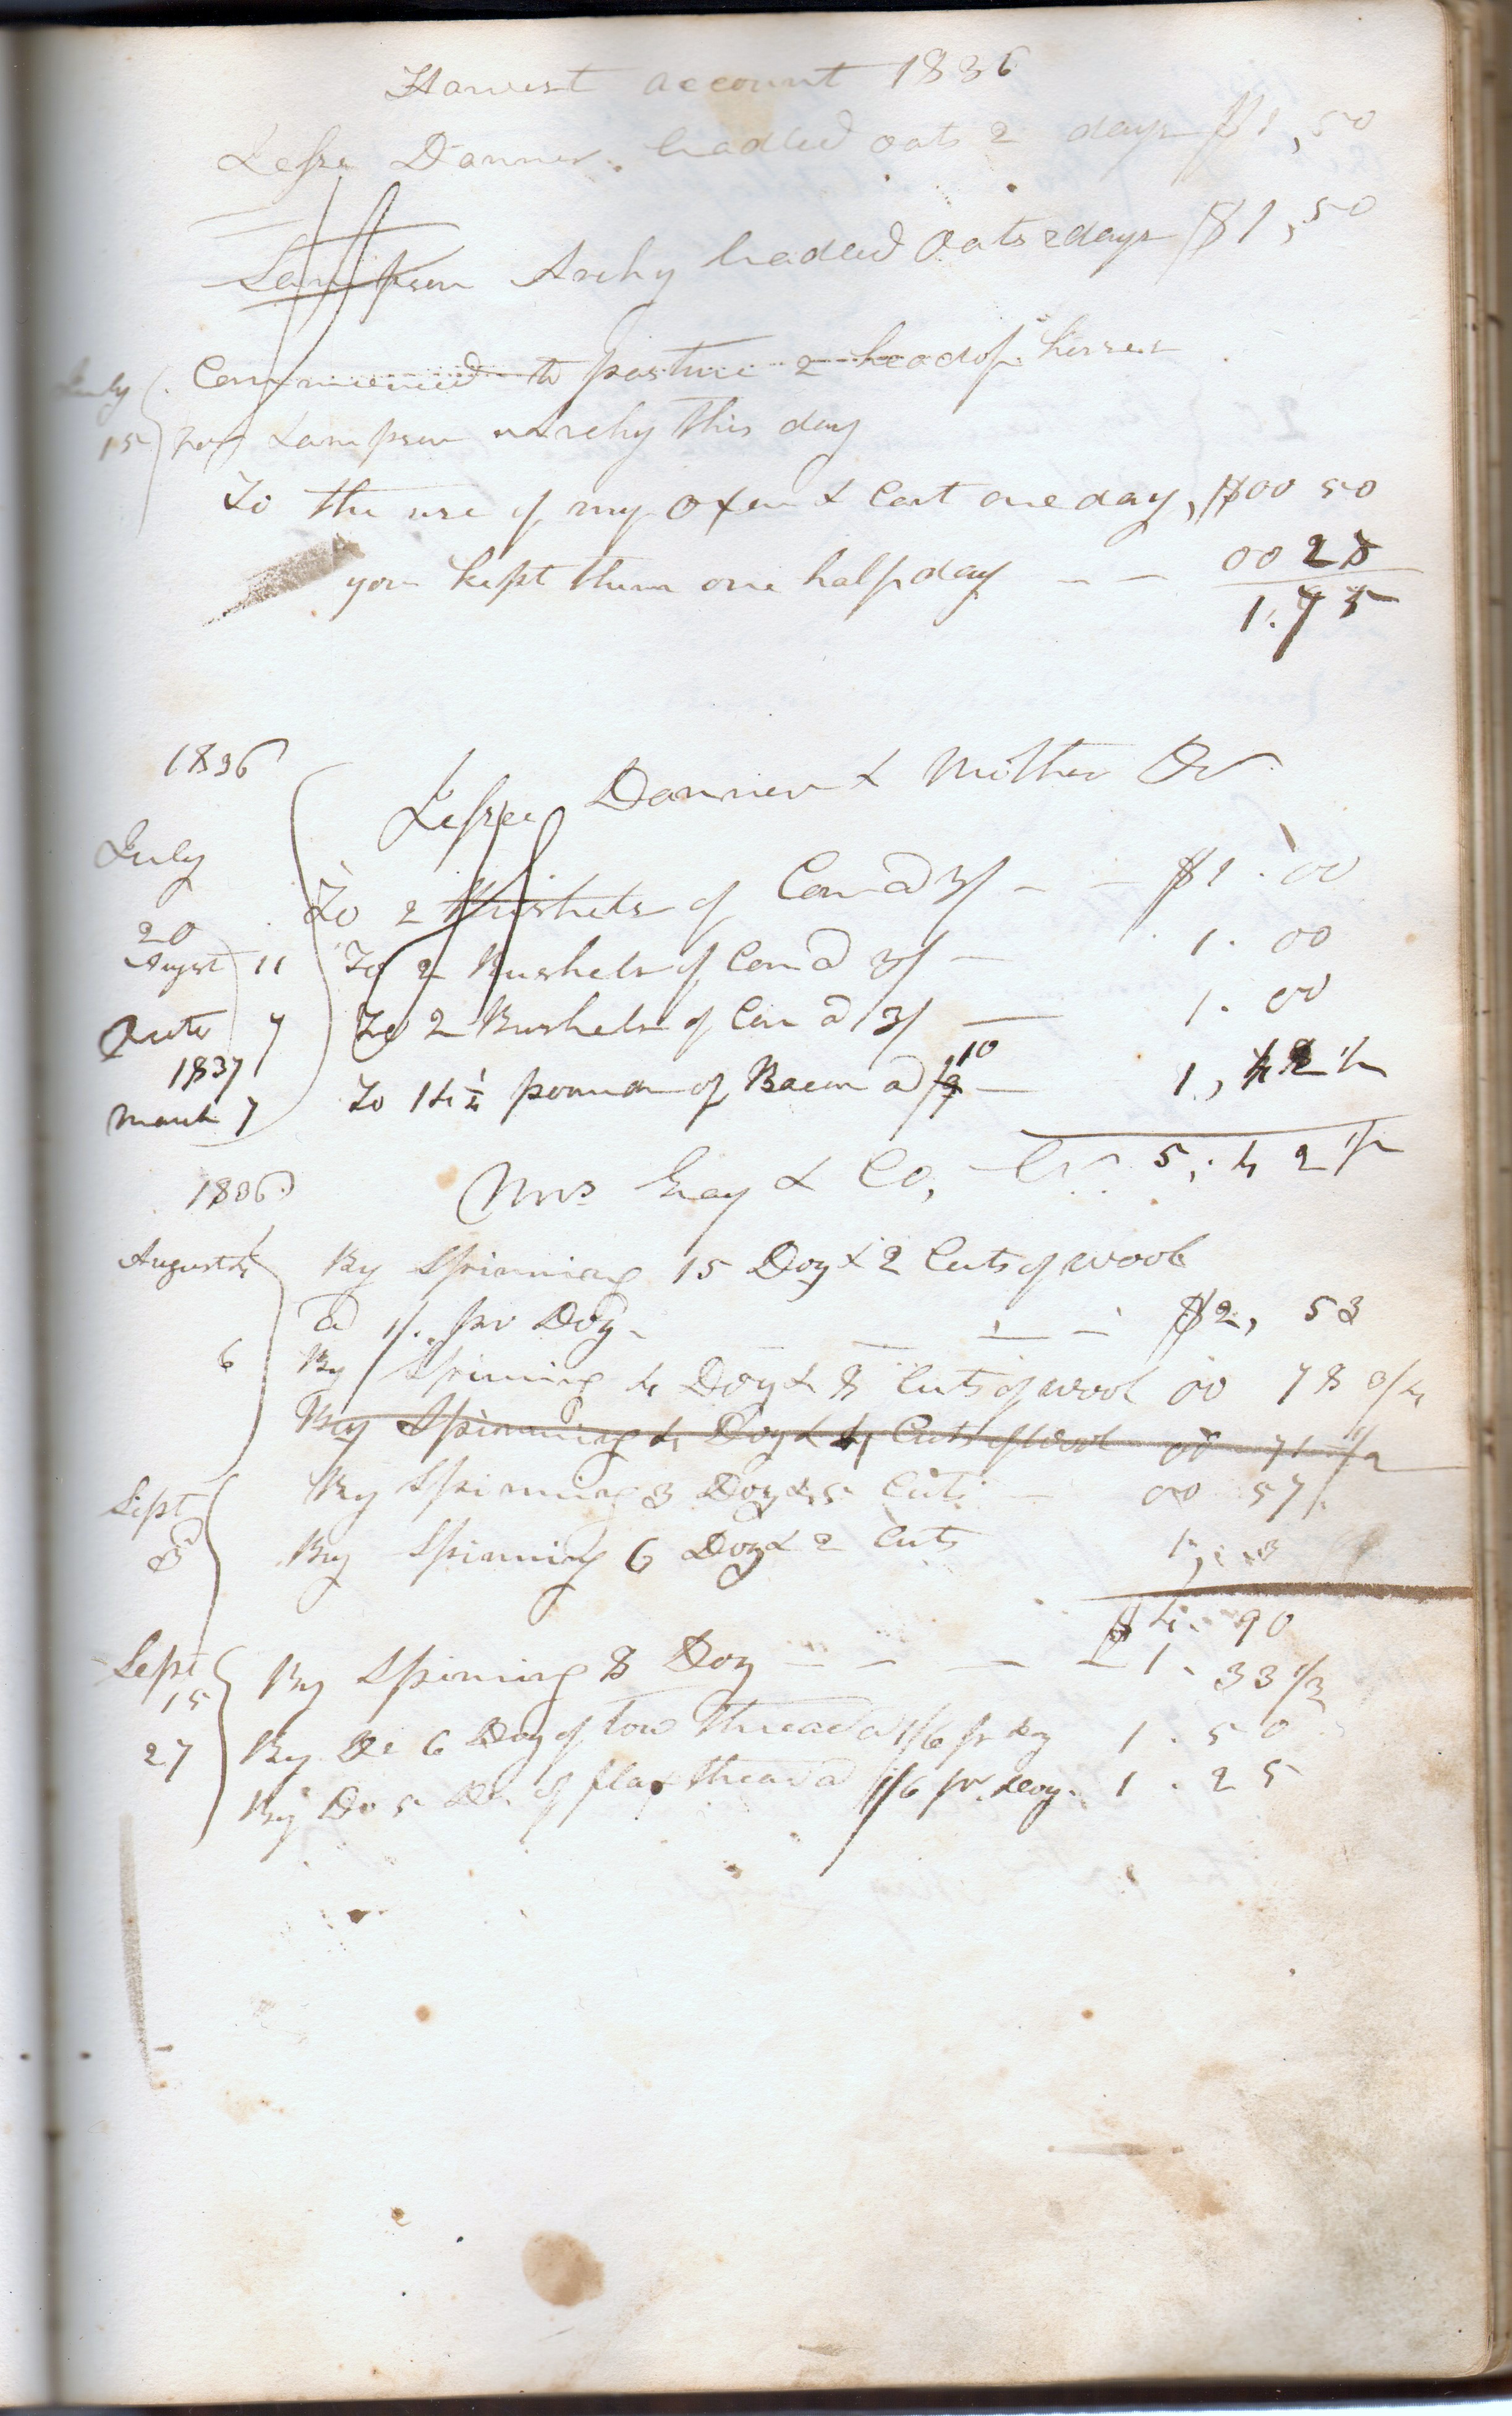 Harvest account 1836
Jesse Danner. Cradled oats 2 days $1,50
Sampson Archy Cradled Oats 2 days $1,50
July Commenced to pasture 2 head of horses
15 for Sampson Archy this day
To the use of my Oxen & Cart one day, $00 50
you kept them one half day - - 00 25
1.75
1836 Jesse Danner & Mother Dr
July
20 To 2 Bushels of Corn @ 3/ - - $1.00
August 11 To 2 Bushels of Corn @ 3/ - 1.00
Octr 7 To 2 Bushels of Corn @ 3/ — 1.00
1837
March 7 To 14 1/4 pounds of Bacon @ 10 - 1,42 1/2
1836 Mrs Gray & Co, Cr. 5,42 1/2
August By Spinning 15 Doz & 2 Cuts of wool
@ 1/. pr Doz - $2, 53
6 By Spinning 4 Doz & 8 Cuts of wool 00 78 3/4
By Spinning 4 Doz & 4 Cuts of wool 00 71 1/2
Sept By Spinning 3 Doz & 5 Cuts - 00 57
8 By Spinning 6 Doz & 2 Cuts 1,.3
$4.90
Sept
15 By Spinning 8 Doz - - - - 1.33 1/3
27 By Do 6 Doz of tow thread @ 1/6 pr Doz 1.50
By Do 5 Do. of flax thread @ 1/6 pr. Doz. 1.25